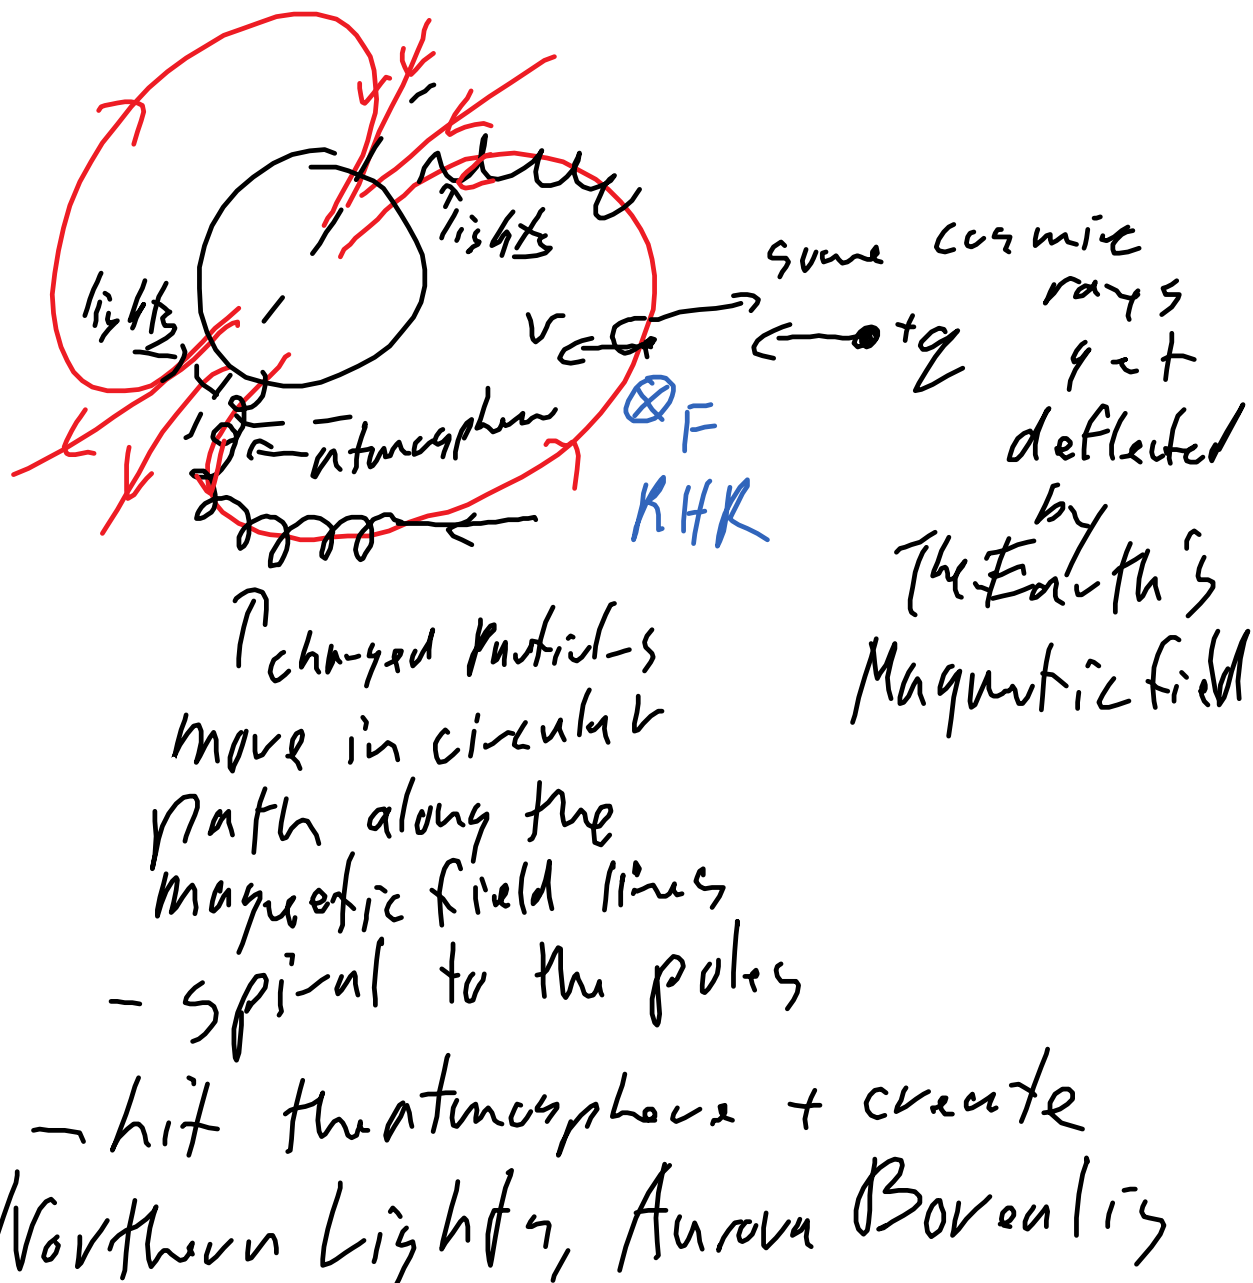 lights
lights
v
+q
F
RHR
atmosphere
some cosmic
rays
get
deflected
by
The Earth's
Magnetic field
charged particles
move in circular
path along the
magnetic field lines
- spiral to the poles
- hit the atmosphere + create
Northern Lights, Aurora Borealis